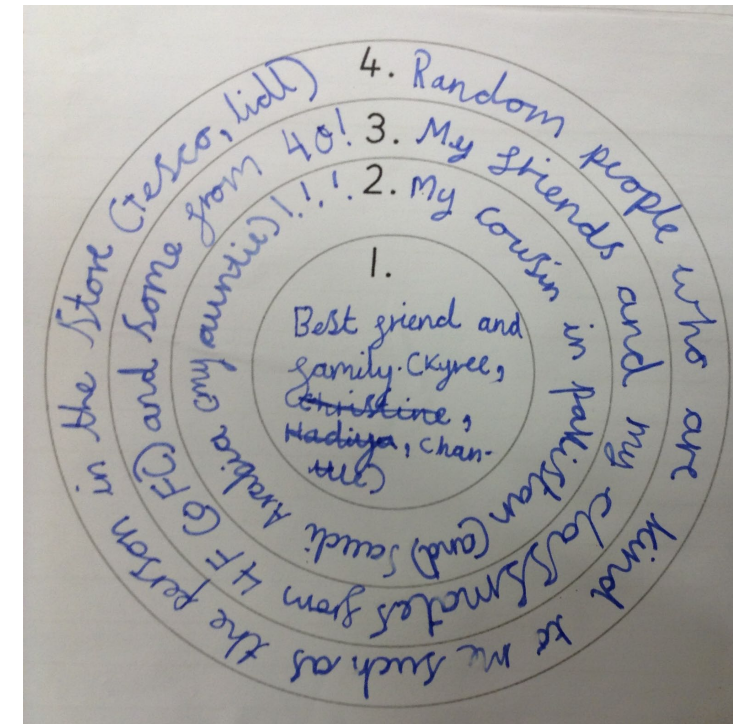 4. Random people who are kind to me such as the person in the store (tesco, lidl)
3. My friends and my classmates from 4F (OFC) and some from 40!
2. My cousin in pakistan (and) Saudi Arabia (my auntie)!.!.!.
1.
Best friend and
family. (Kyree,
Christine,
Hadiya, Chan-